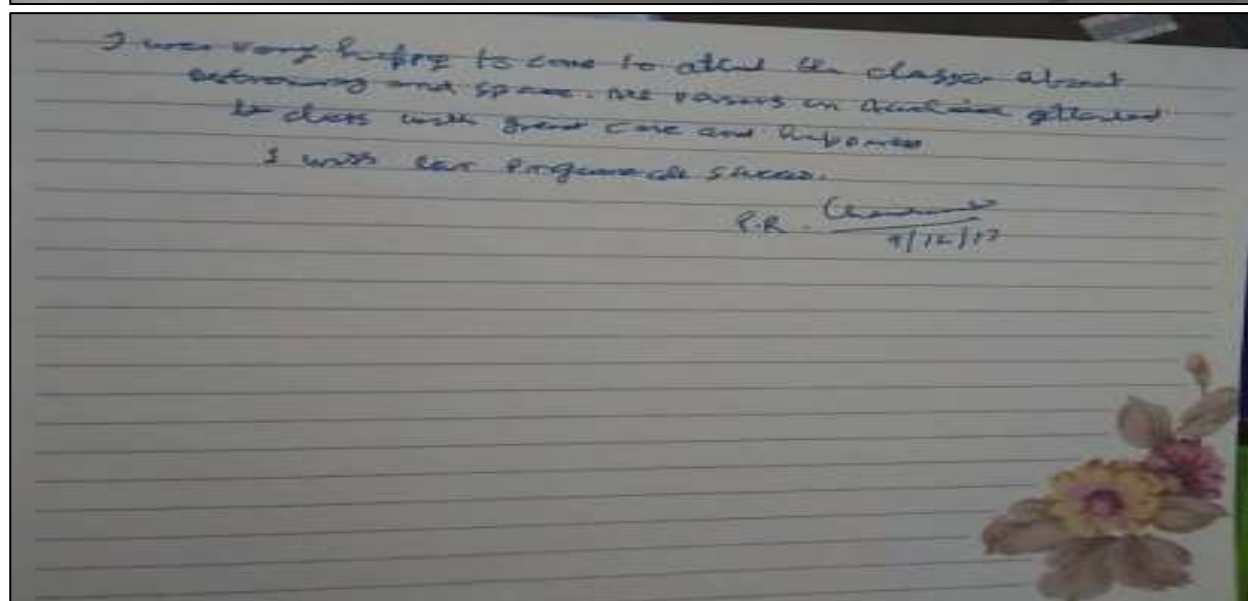 I was very happy to come to attend the classes about
astronomy and space. The persons in audience attended
the class with great care and happiness
I wish each programme success.
P.R.
9/12/17